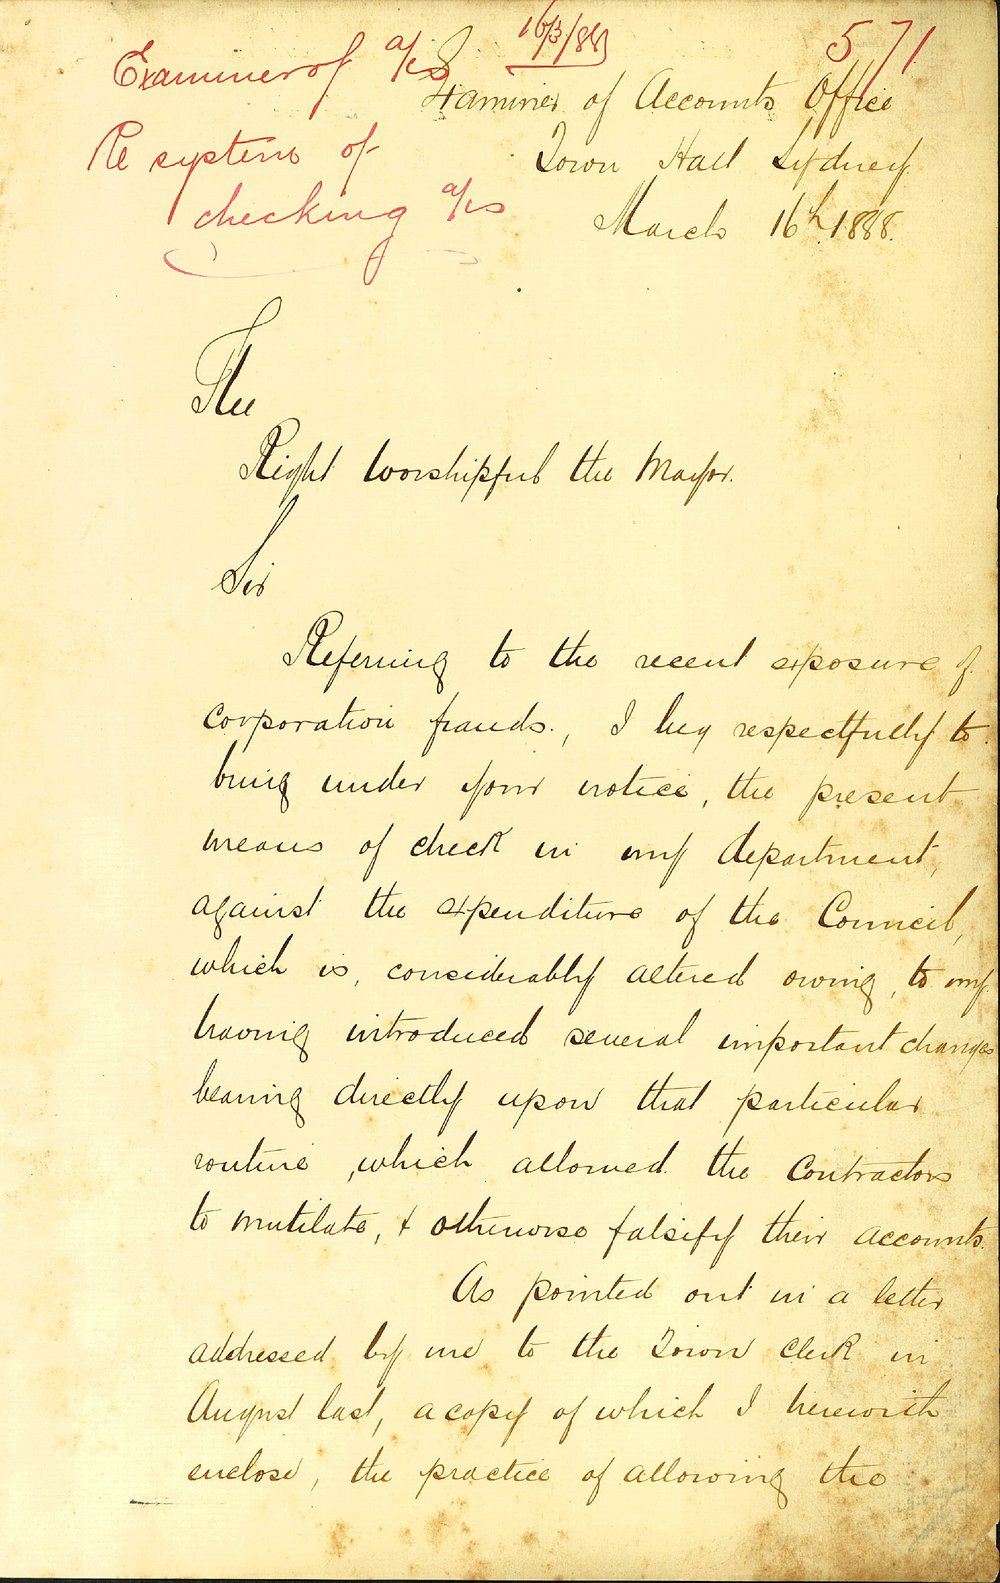 16/3/88
571
Examiner of a/cs
Examiner of Accounts Office
Re system of
Town Hall Sydney
checking a/cs
March 16th 1888.
The
Right Worshipful the Mayor.
Sir
Referring to the recent exposure of
corporation frauds., I beg respectfully to
bring under your notice, the present
means of check in my department,
against the expenditure of the Council,
which is, considerably altered owing, to my
having introduced several important changes
bearing directly upon that particular
routine, which allowed the Contractors
to mutilate, & otherwise falsify their accounts.
As pointed out in a letter
addressed by me to the Town Clerk in
August last, a copy of which I herewith
enclose, the practice of allowing the